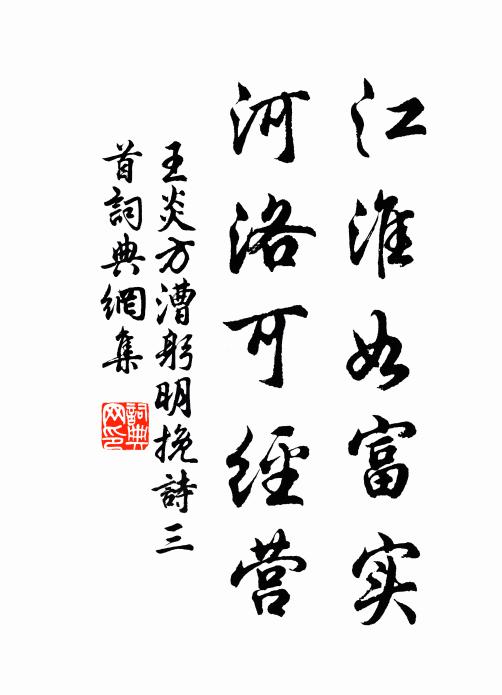 江淮如富实
河洛可經营
王炎方漕躬明挽詩三
首詞典網集
詞典
网印